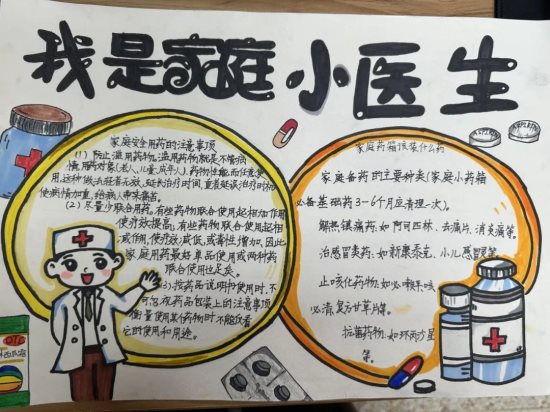 我是家庭小医生
家庭安全用药的注意事项
(1) 防止滥用药物。滥用药物就是不懂病
情、用药对象(老人、儿童、成年人)、药物性能而任意使
用,这种做法轻者无效,延长治疗时间,重者延误治疗时机
使病情加重,给病人带来痛苦。
(2) 尽量少联合用药。有些药物联合使用起相加作用
使疗效提高,有些药物联合使用起相
减作用,使疗效减低,或毒性增加,因此
家庭用药最好单品使用或两种药
联合使用比足矣。
(3)、按药品说明书使用时,不
可忽视药品包装上的注意事项
衡量使用某个药物时不能仅看
它的使用和用途。
家庭药箱该装什么药
家庭备药的主要种类(家庭小药箱
必备基础药3-6个月应清理一次)。
解热镇痛药:如阿司匹林、去痛片、消炎痛等。
治感冒类药:如新康泰克、小儿感冒灵等。
止咳化药物:如必嗽平咳
必清、复方甘草片等。
抗菌药物:如环丙沙星
等。
OTC